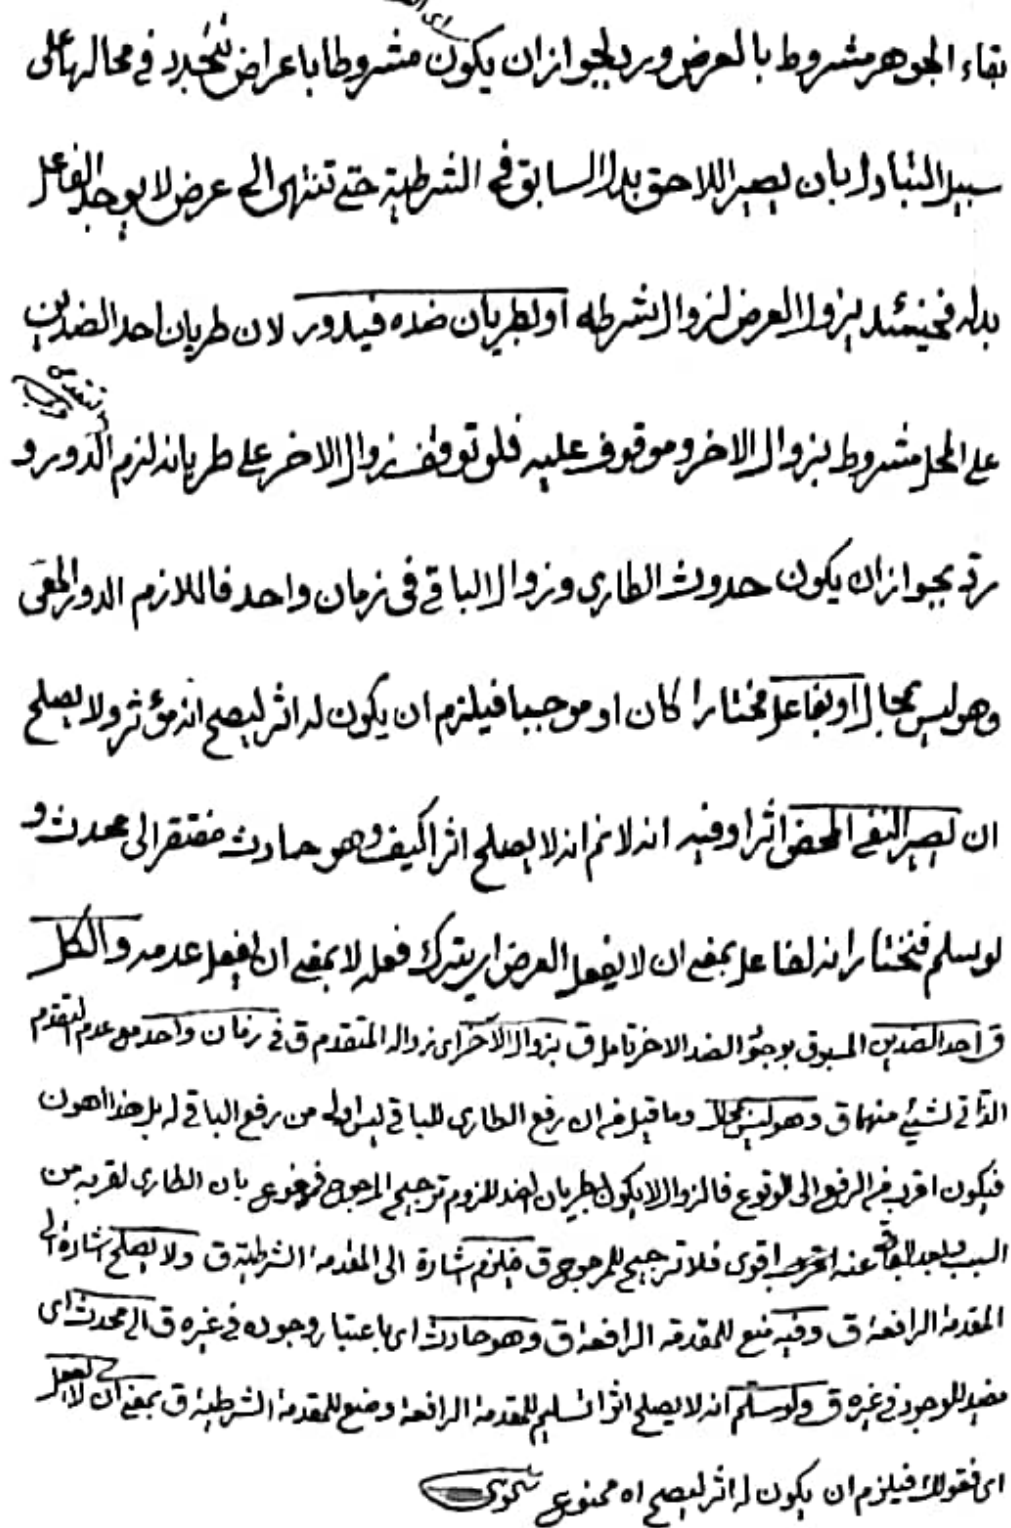 بقاء الجوهر مشروط بالعرض ويرد بجواز ان يكون مشروطا باعراض تتجدد في محالها على
سبيل التبادل بان يصير اللاحق بدل السابق في الشرطية حتى تنتهى الى عرض لا يوجد الفاعل
بدله فحينئذ يزول العرض لزوال شرطه او بطريان ضده فيدور لان طريان احد الضدين
على المحل مشروط بزوال الاخر وموقوف عليه فلو توقف زوال الاخر على طريانه لزم الدور و
رد بجواز ان يكون حدوث الطارى وزوال الباقى فى زمان واحد فاللازم الدور المعى
وهو ليس بمحال او بفاعل مختارا كان او موجبا فيلزم ان يكون له اثر ليصح انه مؤثر ولا يصلح
ان يصير النفى المحض اثرا وفيه انه لا نم انه لا يصلح اثرا كيف وهو حادث مفتقر الى محدث و
لو سلم فنختار انه لفاعل بمعنى ان لا يفعل العرض اى يترك فعله لا بمعنى ان يفعل عدمه والكل
ق احد الضدين المسبوق بوجود الضد الاخر تامل ق بزوال الآخر اى زواله المتقدم ق في زمان واحد مع عدم التقدم
الذاتى لشيئ منهما ق وهو ليس بمحال وما قيل ان رفع الطارى للباقى ليس اولى من رفع الباقى له بل هذا اهون
فيكون اقرب الى الوقوع فالزوال لا يكون بطريان الضد للزوم ترجيح المرجوح فمدفوع بان الطارى لقربه من
السبب وبعد الباقى عنه اقوى فلا ترجيح للمرجوح ق فيلزم اشارة الى المقدمة الشرطية ق ولا يصلح اشارة الى
المقدمة الرافعة ق وفيه منع للمقدمة الرافعة ق وهو حادث اى باعتبار وجوده في غيره ق الى محدث اى
مفيد للوجود في غيره ق ولو سلم انه لا يصلح اثرا تسليم للمقدمة الرافعة ومنع للمقدمة الشرطية ق بمعنى ان لا يفعل
اى فقولك فيلزم ان يكون له اثر ليصح اه ممنوع